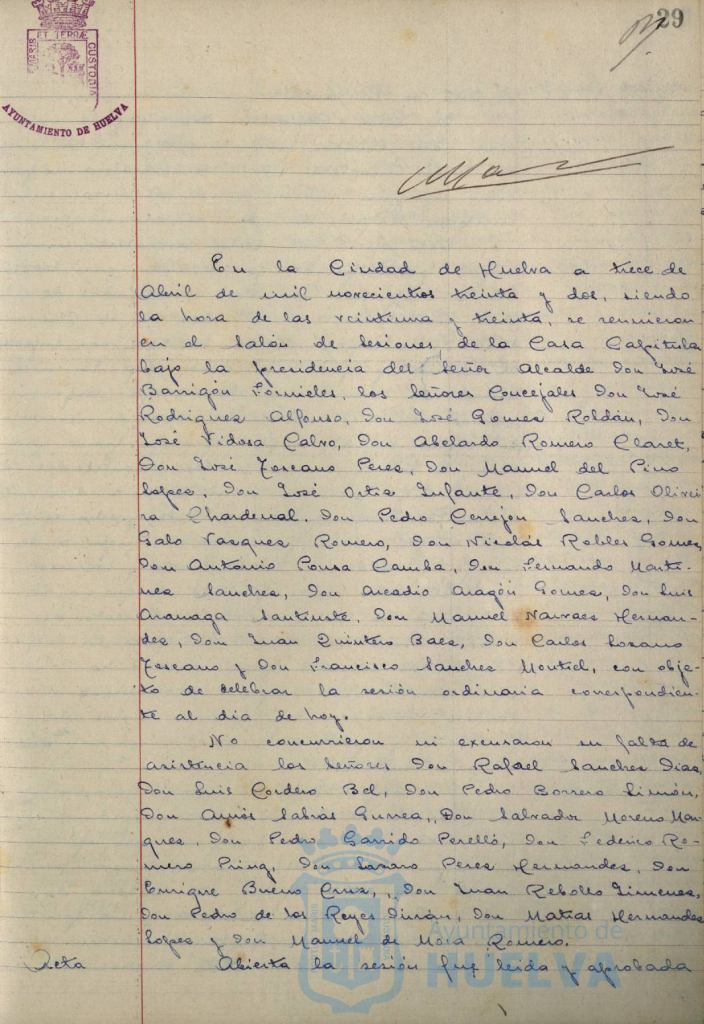 29
PORTUS MARIS ET TERRAE CUSTODIA
AYUNTAMIENTO DE HUELVA
En la Ciudad de Huelva a trece de
Abril de mil novecientos treinta y dos, siendo
la hora de las veintiuna y treinta, se reunieron
en el Salón de Sesiones de la Casa Capitular
bajo la presidencia del Señor Alcalde Don José
Barrigón Fornieles, los Señores Concejales Don José
Rodriguez Alfonso, Don José Gomez Roldán, Don
José Vidosa Calvo, Don Abelardo Romero Claret,
Don José Toscano Perez, Don Manuel del Pino
Lopez, Don José Ortiz Infante, Don Carlos Olivei
ra Chardenal, Don Pedro Cerrejon Sanchez, Don
Galo Vazquez Romero, Don Nicolás Robles Gomez,
Don Antonio Ponsa Camba, Don Fernando Marti-
nez Sanchez, Don Arcadio Aragón Gomez, Don Luis
Aramaga Don Manuel Narvaez Hernan-
dez, Don Juan Quintero Baez, Don Carlos Lozano
Toscano y Don Francisco Sanchez Montiel, con obje-
to de celebrar la sesión ordinaria correspondien-
te al dia de hoy.
No concurrieron ni excusaron su falta de
asistencia los Señores Don Rafael Sanchez Diaz,
Don Luis Cordero Bel, Don Pedro Borrero Limón,
Don Amós Sabrás Gurrea, Don Salvador Moreno Mar-
quez, Don Pedro Garrido Perelló, Don Federico Ro-
mero Pring, Don Lazaro Perez Hernandez, Don
Enrique Bueno Cruz, Don Juan Rebollo Jimenez,
Don Pedro de los Reyes Don Matias Hernandez
Lopez y Don Manuel de Mora Romero.
Acta Abierta la sesión fué leida y aprobada
Ayuntamiento de
HUELVA